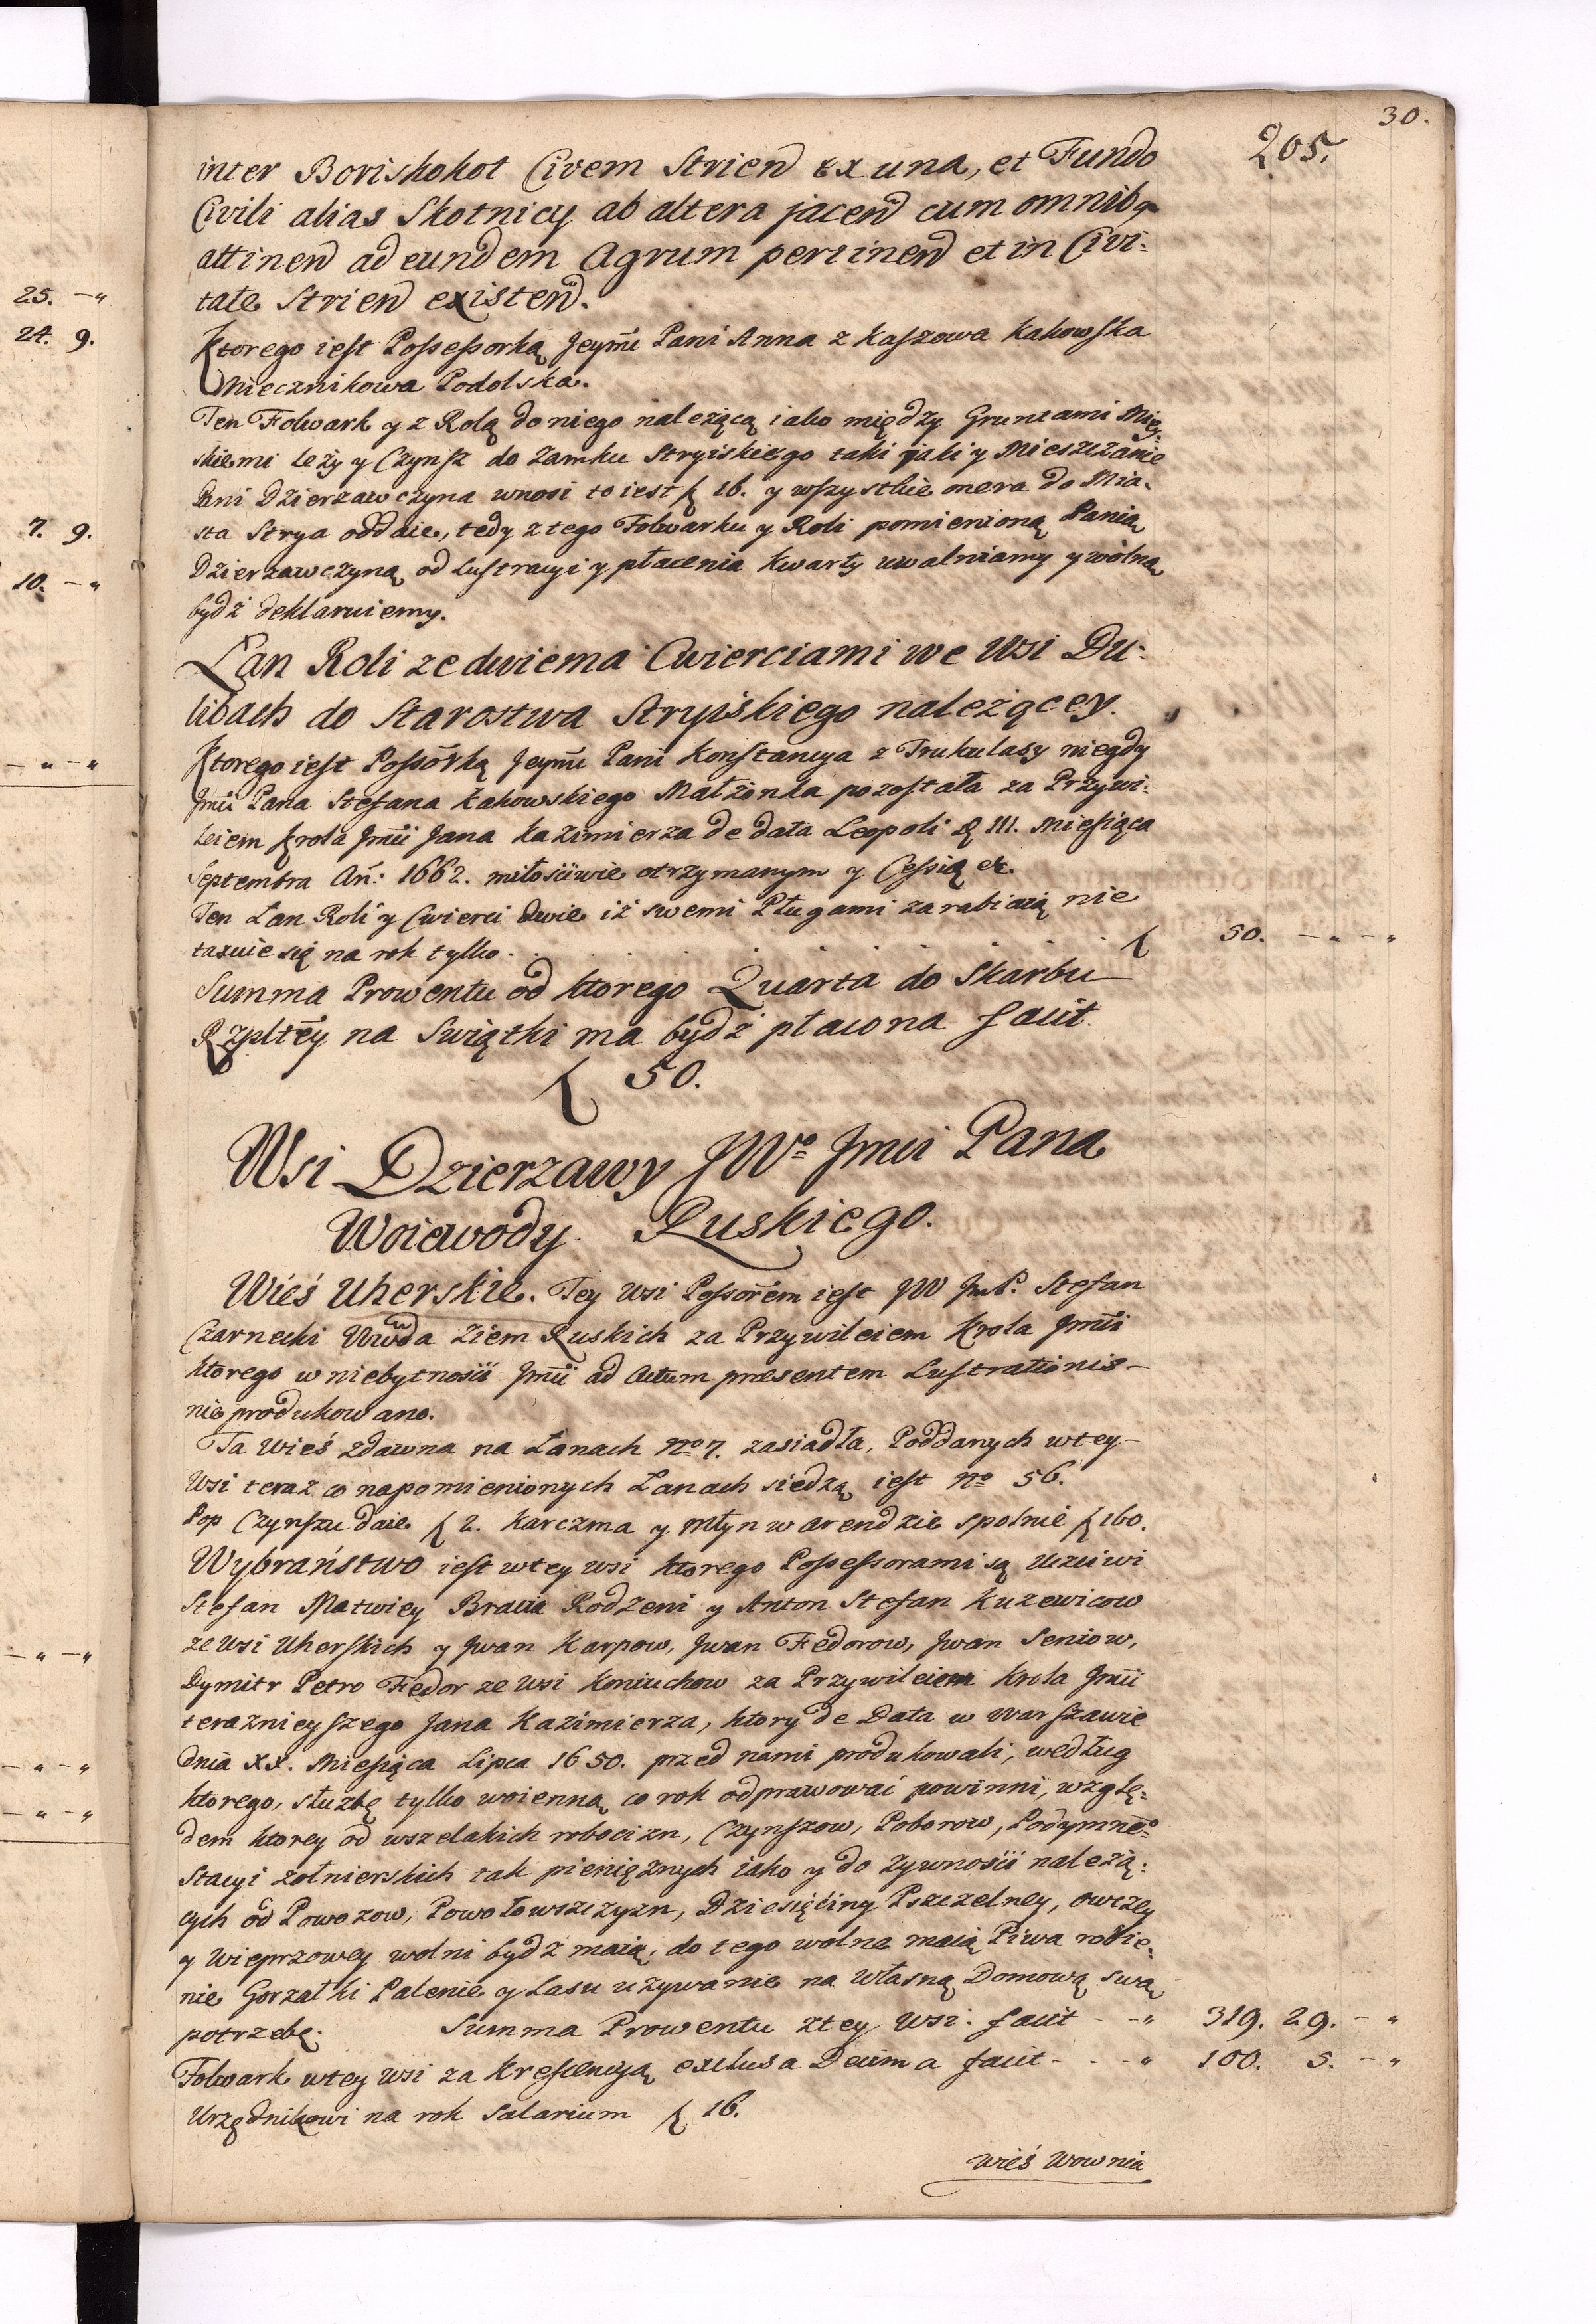 30.
205.
inter Boriskokot Civem Strien̄ ex una, et Fundo
Civili alias Skotnicy ab altera jacen̄ cum omnibq
attinen̄ ad eundem Agrum pertinen̄ et in Civi:
tate Strien̄ existen̄.
Ktorego iest Possessorką Jeym̄ Pani Anna z Kaszowa Kakowska
Miecznikowa Podolska.
Ten Folwark y z Rolą do niego należącą iako między Gruntami Miey:
skiemi leży y Czynsz do Zamku Stryiskiego taki jaki y Mieszczanie
Pani Dzierzawczyna wnosi to iest ƒ 16. y wszystkie onera do Mia:
sta Strya oddaie, tedy z tego Folwarku y Roli pomienioną Panią
Dzierzawczyną od Lustracyi y płacenia Kwarty uwalniamy y wolną
bydź deklaruiemy.
Łan Roli ze dwiema Cwierciami we Wsi Du:
libach do Starostwa Stryiskiego należącey.
Ktorego iest Possōrką Jeym̄ Pani Konstancya z Trukulasy niegdy
Jm̄ci Pana Stefana Kakowskiego Małżonka pozostała za Przywi:
leiem Krola Jm̄ci Jana Kazimierza de data Leopoli D III. Miesiąca
Septembra An̄: 1662. miłościwie otrzymanym y Cessią etc.
Ten Łan Roli y Cwierci dwie iż swemi Pługami zarabiaią nie
taxuie się na rok tylko . . . . . . ƒ 50. — „ — „
Summa Prowentu od ktorego Quarta do Skarbu
Rzpltey na Swiątki ma bydź płacona facit
ƒ 50.
Wsi Dzierzawy JWo Jmci Pana
Woiewody Ruskiego.
Wieś Uherskie. Tey Wsi Possorem iest JW Jm P. Stefan
Czarnecki Wwda Ziem Ruskich za Przywileiem Krola Jm̄ci
ktorego w niebytnosci Jm̄ci ad Actum praesentem Lustrationis
nie produkowano.
Ta Wieś zdawna na Łanach No 7. zasiadła, Poddanych w tey
Wsi teraz co na pomienionych Łanach siedzą iest No 56.
Pop Czynszu daie ƒ 2. Karczma y Młyn w arendzie spolnie ƒ 160.
Wybraństwo iest w tey wsi ktorego Possessorami są Uczciwi
Stefan Matwiey Bracia Rodzeni y Anton Stefan Kuzewicow
ze Wsi Uherskich y Jwan Karpow, Jwan Fedorow, Jwan Seniow,
Dymitr Petro Fedor ze Wsi Koniuchow za Przywileiem Krola Jm̄ci
teraznieyszego Jana Kazimierza, ktory de Data w Warszawie
dnia XX. Miesiąca Lipca 1650. przed nami produkowali, według
ktorego, służbę tylko woienną co rok odprawować powinni, wzglę:
dem ktorey od wszelakich robocizn, Czynszow, Poborow, Podymneo
Stacyi żołnierskich tak pieniężnych iako y do żywności należą:
cych od Powozow, Powołowszczyzn, Dziesięciny Pszczelney, owczey
y Wieprzowey wolni bydź maią, do tego wolne maią Piwa robie:
nie Gorzałki Palenie y Lasu używanie na Własną Domową swą
potrzebę. Summa Prowentu z tey Wsi: facit - - „ 319. 29. — „
Folwark w tey Wsi za Krescencyą exclusa Decima facit - - - „ 100. 5. — „
Urzędnikowi na rok Salarium ƒ 16.
Wieś Wownia
25. — „
24. 9.
7. 9.
10. — „
— „ — „
— „ — „
— „ — „
— „ — „